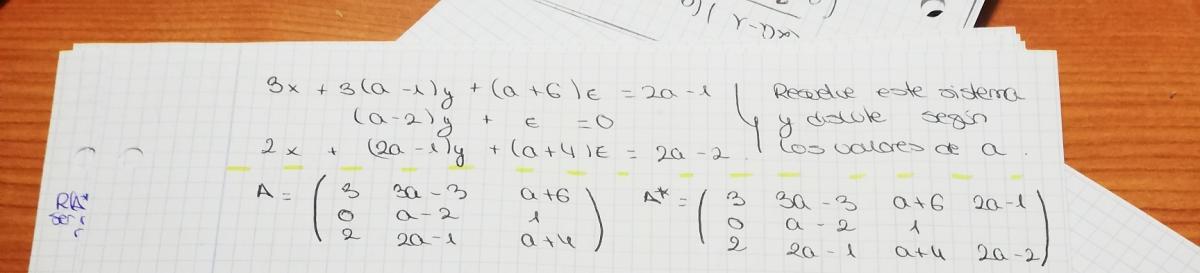 3x + 3(a-1)y + (a+6)z = 2a-1
(a-2)y + z = 0
2x + (2a-1)y + (a+4)z = 2a-2
Resuelve este sistema
y discute según
los valores de a.
A = ( 3 3a-3 a+6
0 a-2 1
2 2a-1 a+4 )
A* = ( 3 3a-3 a+6 2a-1
0 a-2 1
2 2a-1 a+4 2a-2 )